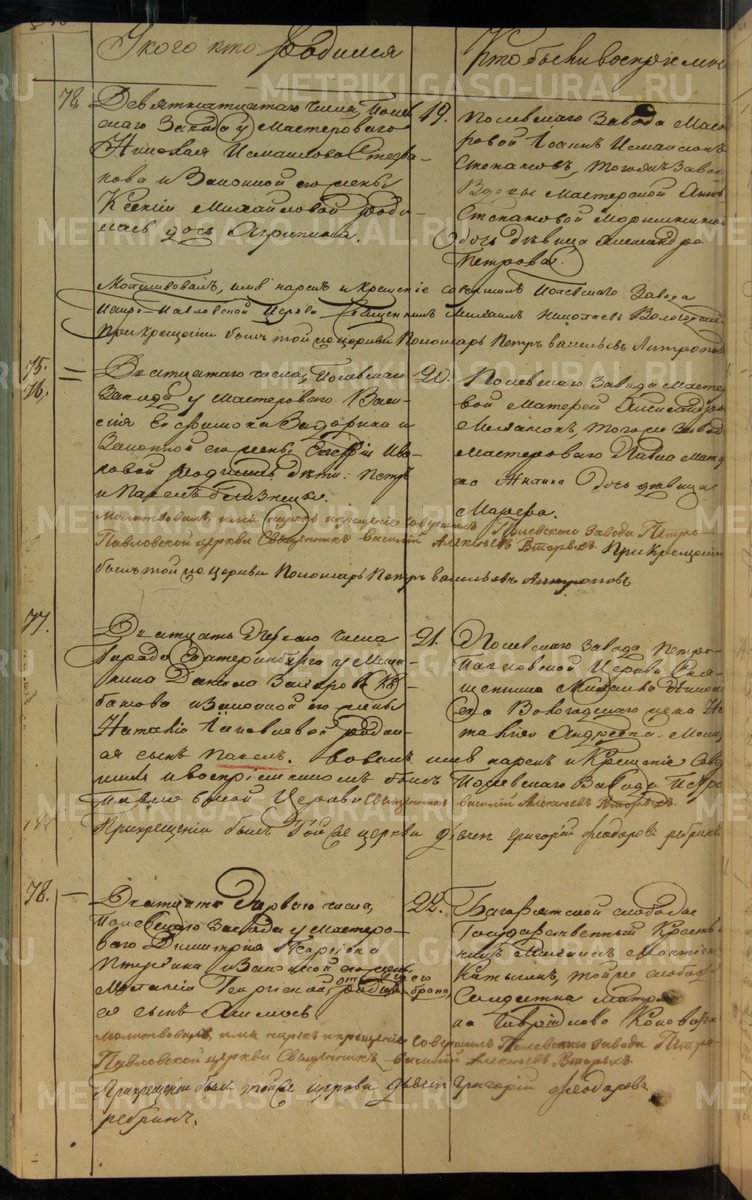 У кого кто родился
Кто были восприемни
78.
Девятнатцатаго числа, Полев
скаго Завода у Мастероваго
Николая Исмаилова Степа-
нова и Законной его жены
Ксении Михайловой роди-
лась дочь Агрипина.
19. Полевскаго Завода Масте
ровой Иоанн
Степановъ, тогожъ Завод
Вдовы Мастерской Анны
Степановой
дочь девица Александра
Петрова.
Молитвовалъ, имя нарекъ и крещение совершилъ Полевскаго Завода
Петро-Павловской Церкви Священникъ Михаилъ Николаевъ Вологодский
При крещении былъ той же церкви Пономарь Петръ Васильевъ Антропов
75.
76.
Дватцатаго числа, Полевскаго
Завода у мастероваго Васи-
лия
Законной его жены Ива-
новой родились дети: Петръ
и Павелъ близнецы.
20. Полевскаго Завода Масте
вой Матвей Александров
тогоже Завод
мастероваго Павла
дочь девица
Марфа.
Молитвовалъ, имя нарекъ и крещение совершилъ Полевскаго Завода Петро-
Павловской церкви Священникъ Василий Алексеевъ Вторыхъ При Крещении
былъ той же церкви Пономарь Петръ Васильевъ Антроповъ
77.
Дватцать Перваго числа
Города Екатеринбурга у Меща-
нина Данила Захарова Ка-
банова и Законной его жены
Наталии родил-
ся сынъ Павелъ.
21. Полевскаго завода Петро-
Павловской Церкви Свя-
щенника Михаила Никола
ева Вологодскаго жена На
талия Андреева. Молит
вовалъ имя нарекъ и Крещение Сове
шилъ и восприемникомъ былъ Полевскаго Завода Петро
Павловской Церкви Священникъ Василий Алексеевъ Вторыхъ
При крещении былъ Той же церкви дьячекъ Григорий Феодоровъ Ребринъ
78.
Дватцать Перваго числа,
Полевскаго Завода у мастеро-
ваго Димитрия
и Законной его жены
Наталии Георгиевой от его брака, родил-
ся сынъ
22. Багарякской слободы
Государственный Крестья
нинъ Михаилъ
той же слободы
Солдатка Матре
на Гаврилова
Молитвовалъ, имя нарекъ и крещение Совершилъ Полевскаго Завода Петро-
Павловской церкви Священникъ Василий Алексеевъ Вторыхъ
При крещении былъ той же церкви дьячекъ Григорий Феодоровъ
Ребринъ.
METRIKI.GASO-URAL.RU